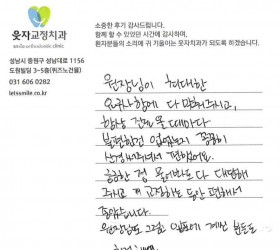 웃자교정치과
소중한 후기 감사드립니다.
함께 할 수 있었던 시간에 감사하며,
환자분들의 소리에 귀 기울이는 웃자치과가 되도록 하겠습니다.
성남시 중원구 성남대로 1156
도원빌딩 3~5층(퀴즈노건물)
031 606 0282
letsumile.co.kr
원장님이 최대한
요구사항에 다 맞춰주시고,
항상 진료 볼 때마다
불편한건 없었는지 꼼꼼히
신경써주셔서 편했어요.
궁금한 점 물어봐도 다 대답해
주시고 제 교정하는 동안 편해서
좋았습니다.
원장님도 그렇고 계신 분들도